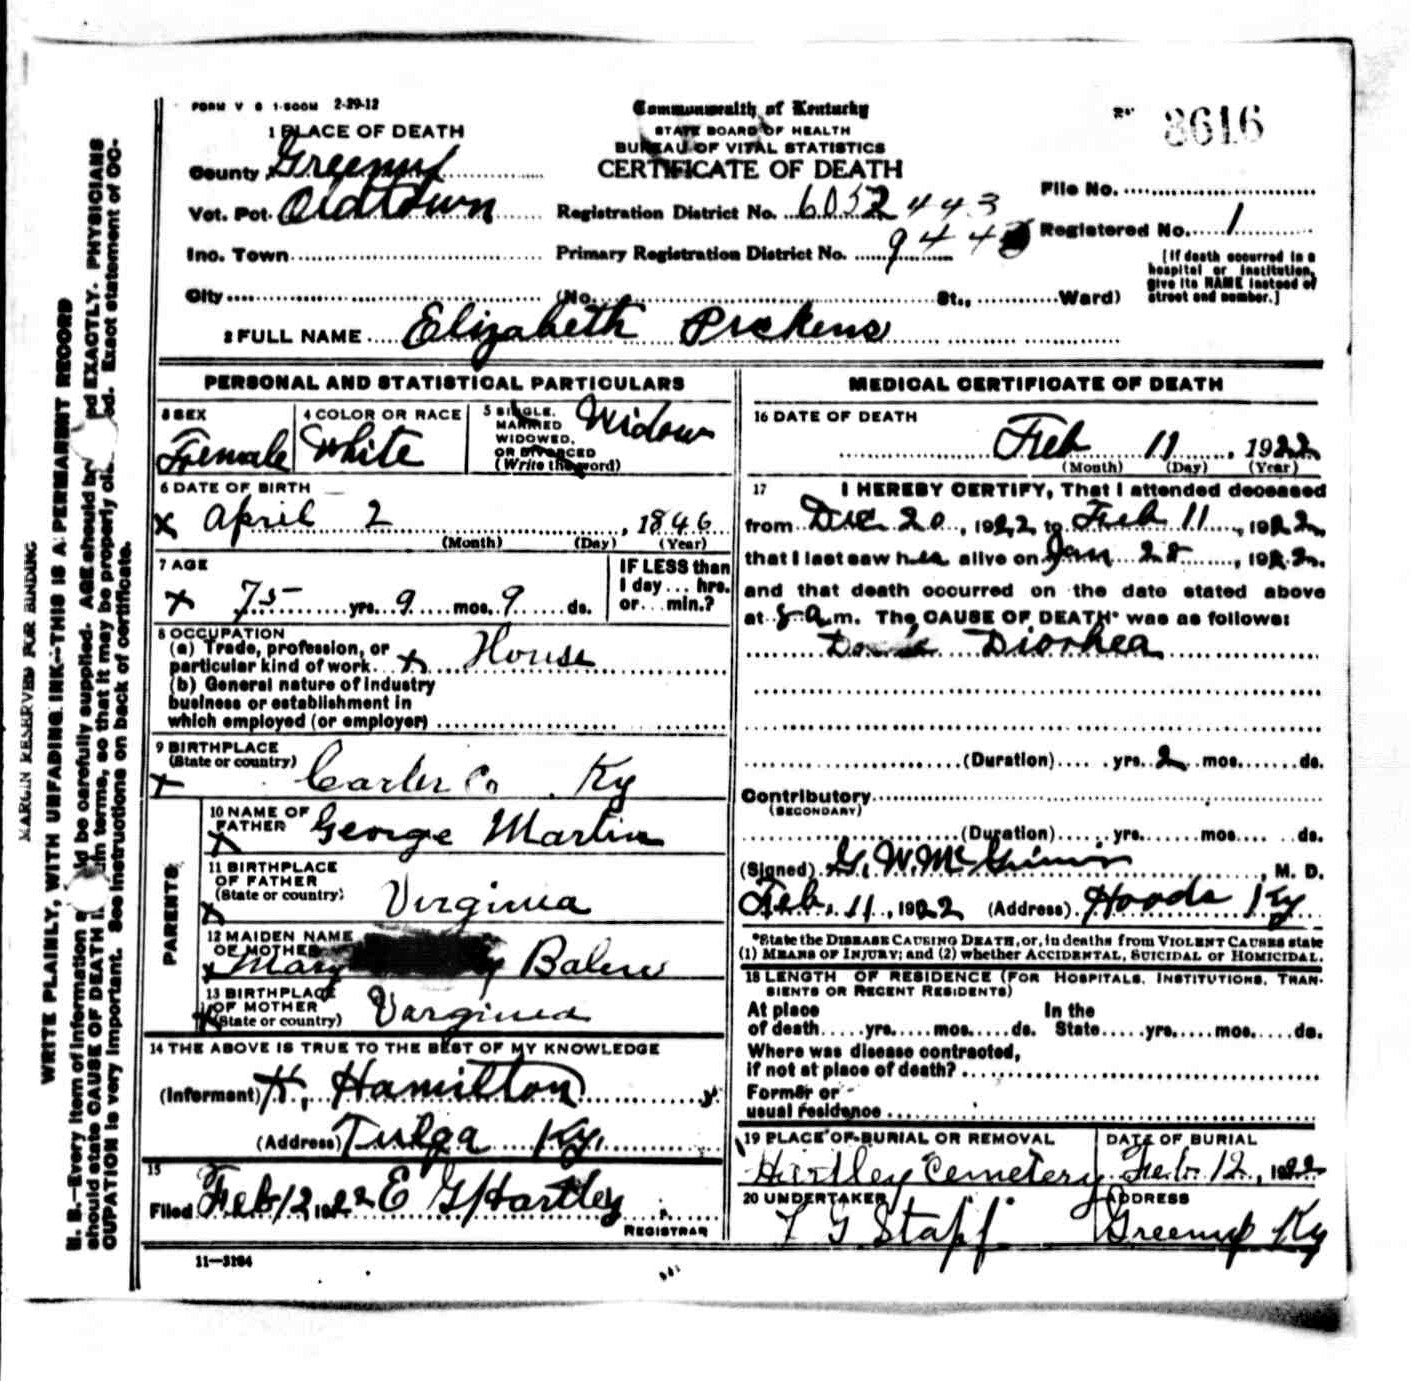 FORM V S 1-500M 2-29-12
Commonwealth of Kentucky
STATE BOARD OF HEALTH
BUREAU OF VITAL STATISTICS
CERTIFICATE OF DEATH
3616
1 PLACE OF DEATH
County Greenup
Vot. Pct. Oldtown
Inc. Town
City
Registration District No. 6052 443
Primary Registration District No. 944
File No.
Registered No. 1
(No. St., Ward)
[If death occurred in a hospital or institution, give its NAME instead of street and number.]
2 FULL NAME Elizabeth Pickens
PERSONAL AND STATISTICAL PARTICULARS
3 SEX Female
4 COLOR OR RACE White
5 SINGLE, MARRIED WIDOWED, OR DIVORCED (Write the word) Widow
6 DATE OF BIRTH
x April 2, 1846
(Month) (Day) (Year)
7 AGE
x 75 yrs. 9 mos. 9 ds.
IF LESS than 1 day ... hrs. or ... min.?
8 OCCUPATION
(a) Trade, profession, or particular kind of work x House
(b) General nature of industry business or establishment in which employed (or employer)
9 BIRTHPLACE
(State or country)
x Carter Co Ky
PARENTS
10 NAME OF FATHER x George Martin
11 BIRTHPLACE OF FATHER (State or country) x Virginia
12 MAIDEN NAME OF MOTHER x Mary
13 BIRTHPLACE OF MOTHER (State or country) x Varginia
14 THE ABOVE IS TRUE TO THE BEST OF MY KNOWLEDGE
(Informant) H. Hamilton
(Address) Tulga Ky.
15
Filed Feb 12, 1922 E G Hartley
REGISTRAR
11—3184
MEDICAL CERTIFICATE OF DEATH
16 DATE OF DEATH
Feb 11, 1922
(Month) (Day) (Year)
17 I HEREBY CERTIFY, That I attended deceased
from Dec 20, 1922 to Feb 11, 1922,
that I last saw her alive on Jan 28, 1922.
and that death occurred on the date stated above
at 8 a.m. The CAUSE OF DEATH* was as follows:
Diorhea
(Duration) yrs. 2 mos. ds.
Contributory
(SECONDARY)
(Duration) yrs. mos. ds.
(Signed) G. W. , M. D.
Feb, 11, 1922 (Address) Hoods Ky
*State the DISEASE CAUSING DEATH, or, in deaths from VIOLENT CAUSES state
(1) MEANS OF INJURY; and (2) whether ACCIDENTAL, SUICIDAL or HOMICIDAL.
18 LENGTH OF RESIDENCE (FOR HOSPITALS, INSTITUTIONS, TRANSIENTS OR RECENT RESIDENTS)
At place of death yrs. mos. ds. In the State yrs. mos. ds.
Where was disease contracted,
if not at place of death?
Former or
usual residence
19 PLACE OF BURIAL OR REMOVAL
Hartley Cemetery
DATE OF BURIAL
Feb. 12, 1922
20 UNDERTAKER
G Stapf
ADDRESS
Greenup Ky
MARGIN RESERVED FOR BINDING
WRITE PLAINLY, WITH UNFADING INK—THIS IS A PERMANENT RECORD
N. B.—Every item of information should be carefully supplied. AGE should be stated EXACTLY. PHYSICIANS
should state CAUSE OF DEATH in plain terms, so that it may be properly classified. Exact statement of OC-
CUPATION is very important. See instructions on back of certificate.